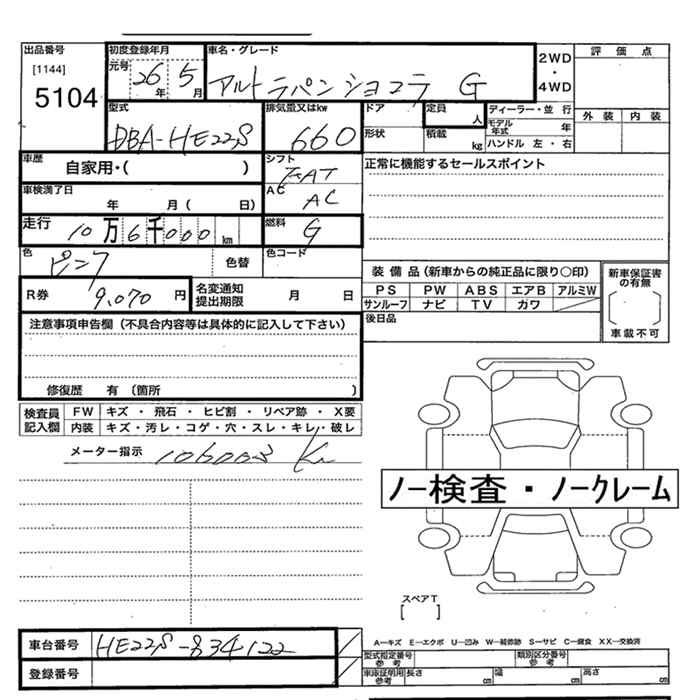 出品番号
[1144]
5104
初度登録年月
元号 26年 5月
車名・グレード
アルトラパンショコラ G
2WD
・
4WD
評価点
外装 内装
型式
DBA-HE22S
排気量又はkw
660
ドア
形状
定員 人
積載 kg
ディーラー・並行
モデル年式 年
ハンドル 左・右
車歴
自家用・( )
シフト
FAT
正常に機能するセールスポイント
車検満了日
年 月( 日)
AC
AC
走行
10万6千000km
燃料
G
色
ピンク
色替
色コード
装備品(新車からの純正品に限り○印)
PS PW ABS エアB アルミW
サンルーフ ナビ TV ガワ
新車保証書の有無
[ ]
車載不可
R券 9,070円
名変通知
提出期限
月 日
後日品
注意事項申告欄(不具合内容等は具体的に記入して下さい)
修復歴 有(箇所 )
検査員記入欄
FW キズ・飛石・ヒビ割・リペア跡・X要
内装 キズ・汚レ・コゲ・穴・スレ・キレ・破レ
メーター指示
ノー検査・ノークレーム
スペアT
[ ]
A―キズ E―エクボ U―凹み W―補修跡 S―サビ C―腐食 XX―交換済
車台番号 HE22S-834122
登録番号
型式指定番号
参考
類別区分番号
参考
車庫証明用
参考
長さ cm
幅 cm
高さ cm